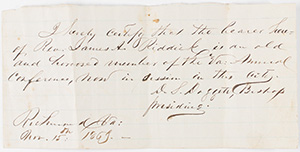 I hereby certify that the bearer
of, Rev. James A. Riddick is an old
and honored member of the Va. Annual
Conference, now in session in this City.
D. S. Doggett, Bishop
presiding.
Richmond, Va:
Nov. 15th 1869.